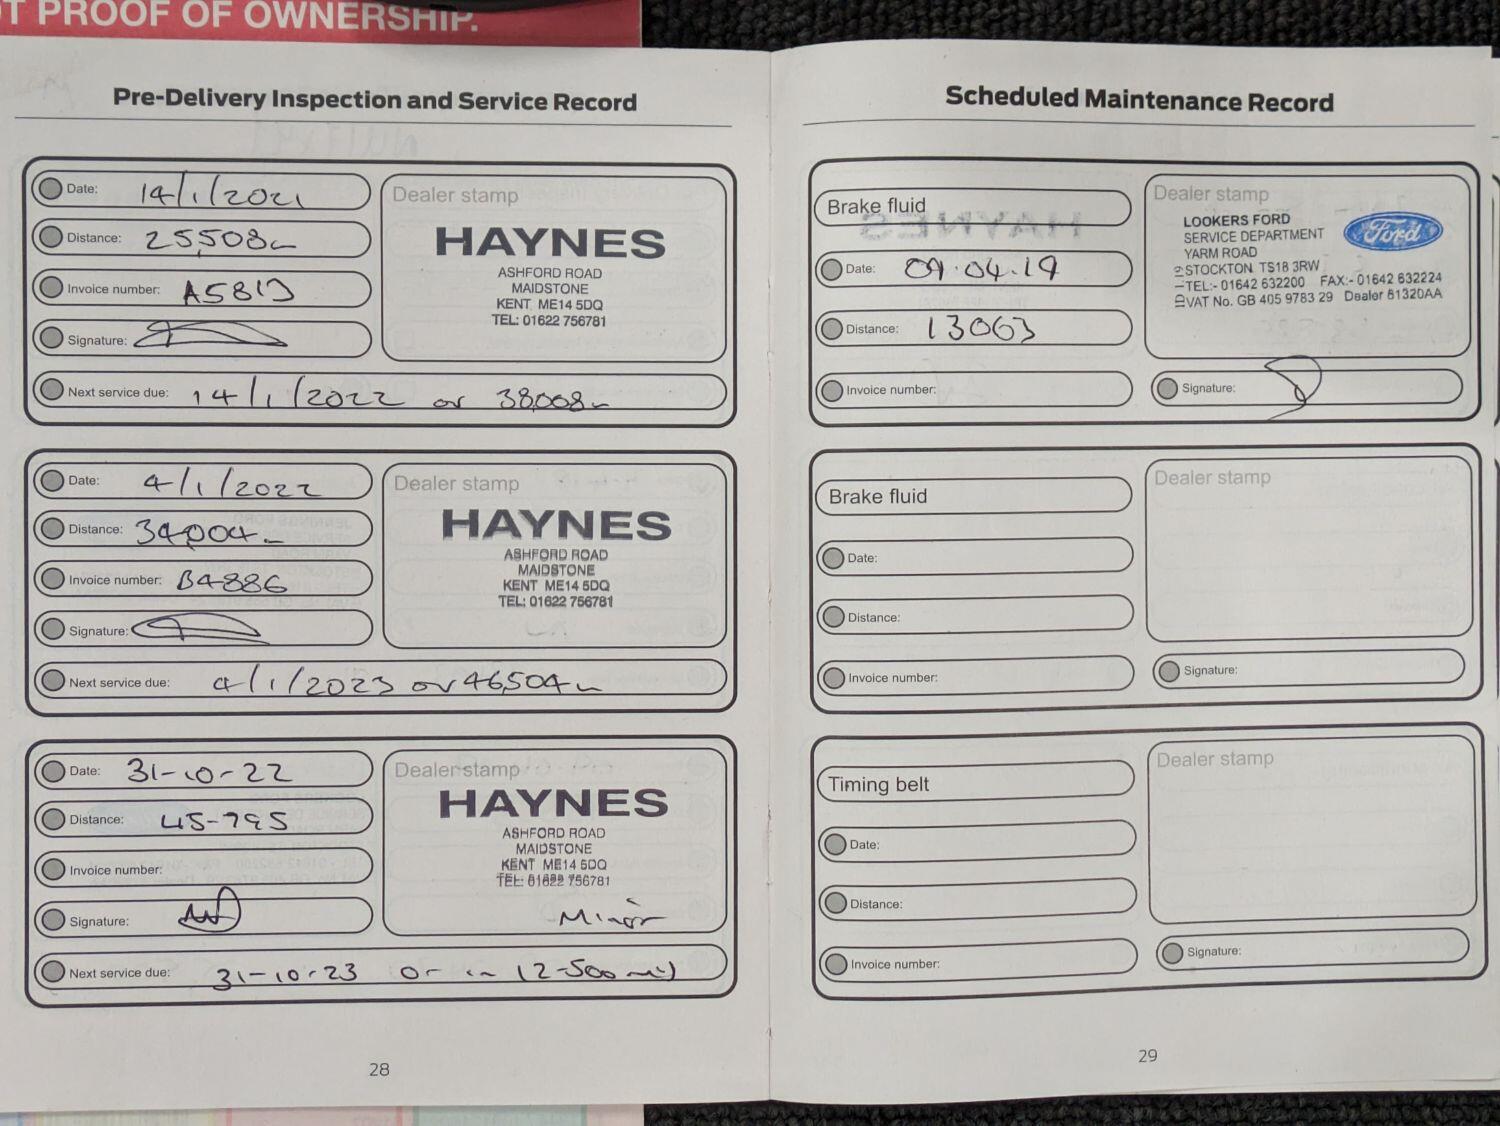 T PROOF OF OWNERSHIP.
Pre-Delivery Inspection and Service Record
Date: 14/1/2021
Distance: 25,508m
Invoice number: A5819
Signature:
Next service due: 14/1/2022 or 38,008m
Dealer stamp
HAYNES
ASHFORD ROAD
MAIDSTONE
KENT ME14 5DQ
TEL: 01622 756781
Date: 4/1/2022
Distance: 34,004m
Invoice number: B4886
Signature:
Next service due: 4/1/2023 or 46,504m
Dealer stamp
HAYNES
ASHFORD ROAD
MAIDSTONE
KENT ME14 5DQ
TEL: 01622 756781
Date: 31-10-22
Distance: 45-795
Invoice number:
Signature:
Next service due: 31-10-23 or in 12-500
Dealer stamp
HAYNES
ASHFORD ROAD
MAIDSTONE
KENT ME14 5DQ
TEL: 01622 756781
Minor
28
Scheduled Maintenance Record
Brake fluid
Date: 09.04.19
Distance: 13063
Invoice number:
Dealer stamp
LOOKERS FORD
SERVICE DEPARTMENT
YARM ROAD
STOCKTON TS18 3RW
TEL:- 01642 632200 FAX:- 01642 632224
VAT No. GB 405 9783 29 Dealer 61320AA
Ford
Signature:
Brake fluid
Date:
Distance:
Invoice number:
Dealer stamp
Signature:
Timing belt
Date:
Distance:
Invoice number:
Dealer stamp
Signature:
29